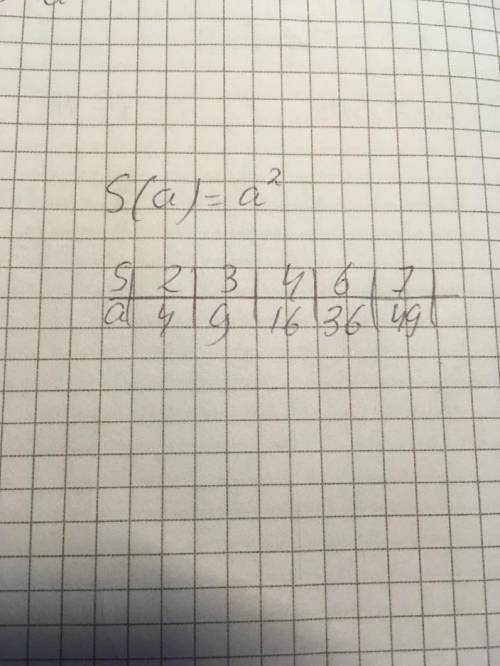 S(a) = a²
S 2 3 4 6 7
a 4 9 16 36 49